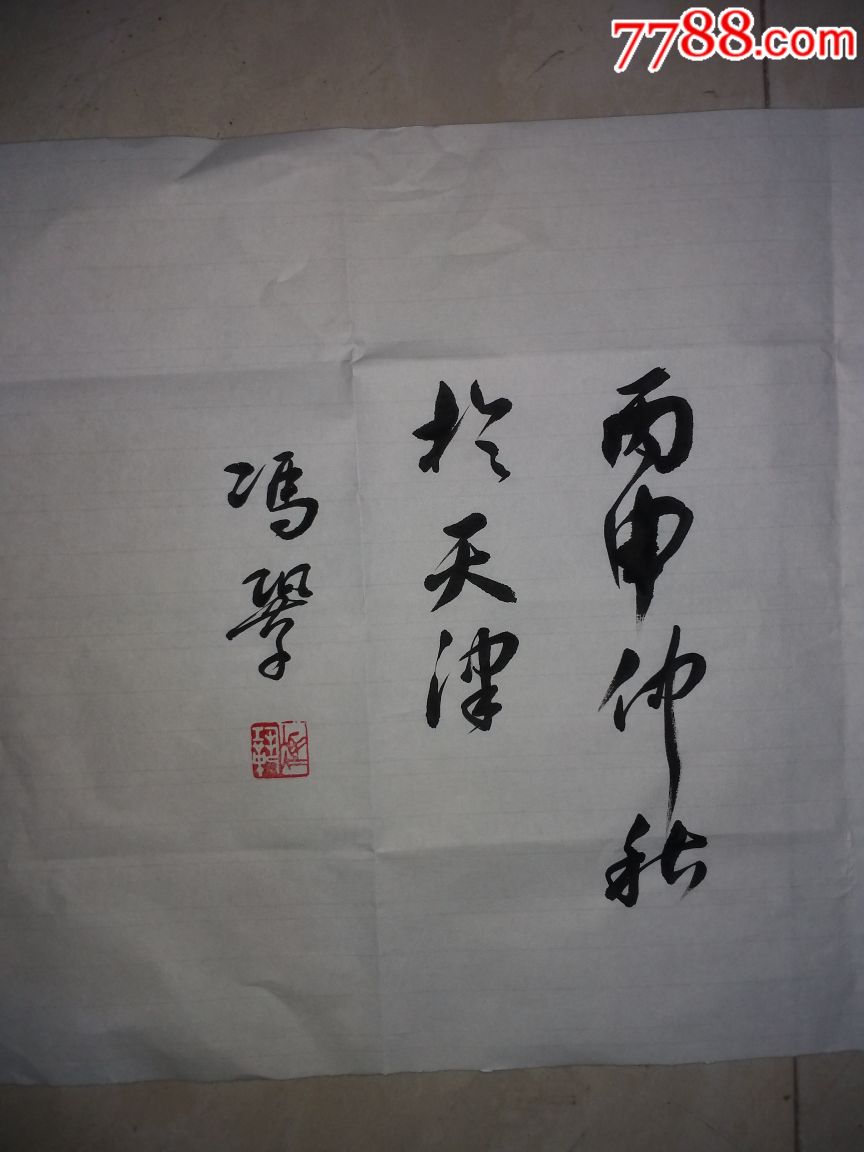 7788.com
丙申仲秋
於天津
冯